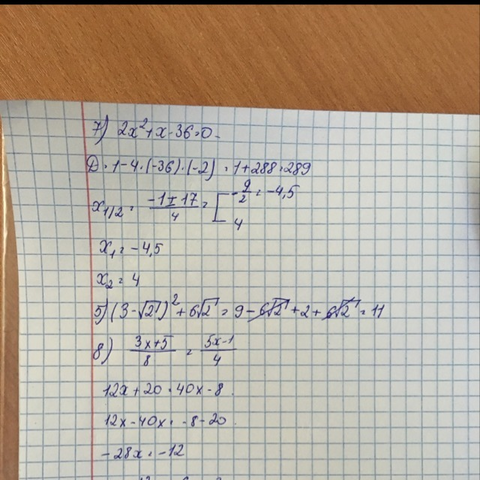 7) 2x²+x-36=0.
D=1-4·(-36)·(-2)=1+288=289
x1/2= (-1±17)/4 = [ -9/2=-4,5
4
x₁=-4,5
x₂=4
5) (3-√2)²+6√2=9-6√2+2+6√2=11
8) (3x+5)/8 = (5x-1)/4
12x+20=40x-8
12x-40x=-8-20.
-28x=-12